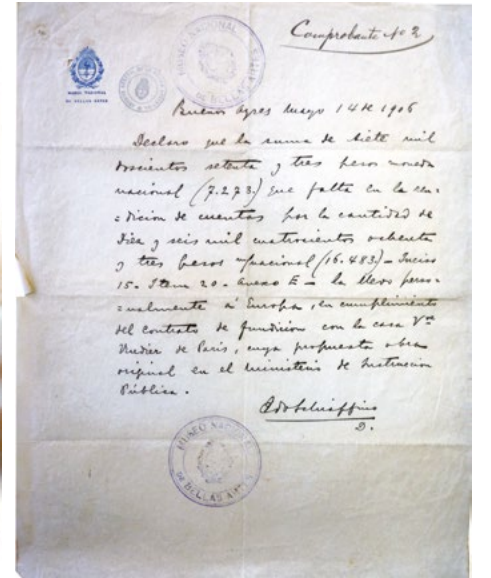 Comprobante Nº 2
MUSEO NACIONAL
DE BELLAS ARTES
MUSEO NACIONAL
DE BELLAS ARTES
Buenos Ayres Mayo 14 de 1906
Declaro que la suma de siete mil
doscientos setenta y tres pesos moneda
nacional (7.273) que falta en la ren:
=dicion de cuentas por la cantidad de
Diez y seis mil cuatrocientos ochenta
y tres pesos m/nacional (16.483) – Inciso
15. Item 20. Anexo E – la llevo perso:
=nalmente á Europa, en cumplimiento
del contrato de fundicion con la casa Vve
Rudier de Paris, cuya propuesta obra
original en el ministerio de Instruccion
Pública.
Edo Schiaffino
D.
MUSEO NACIONAL
DE BELLAS ARTES